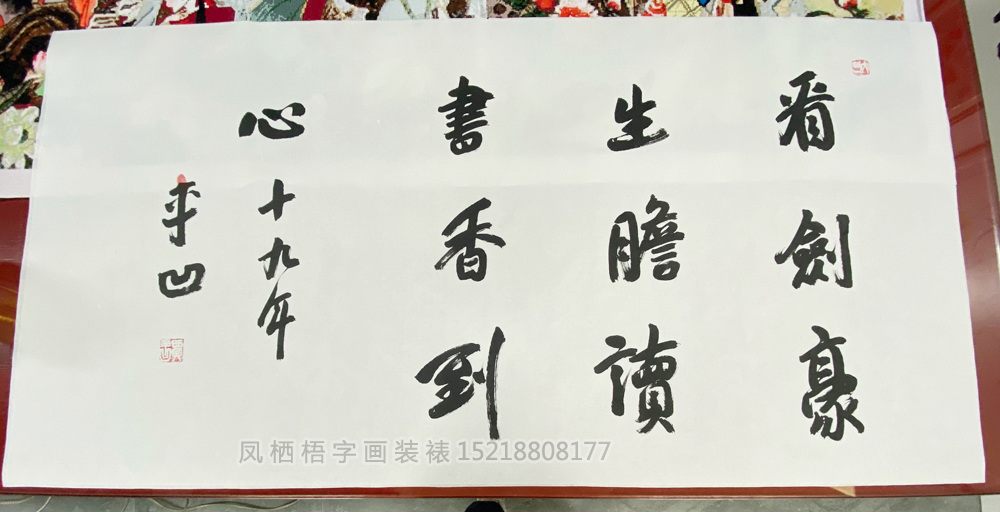 看劍豪
生膽讀
書香到
心十九年
平凹
凤栖梧字画装裱15218808177